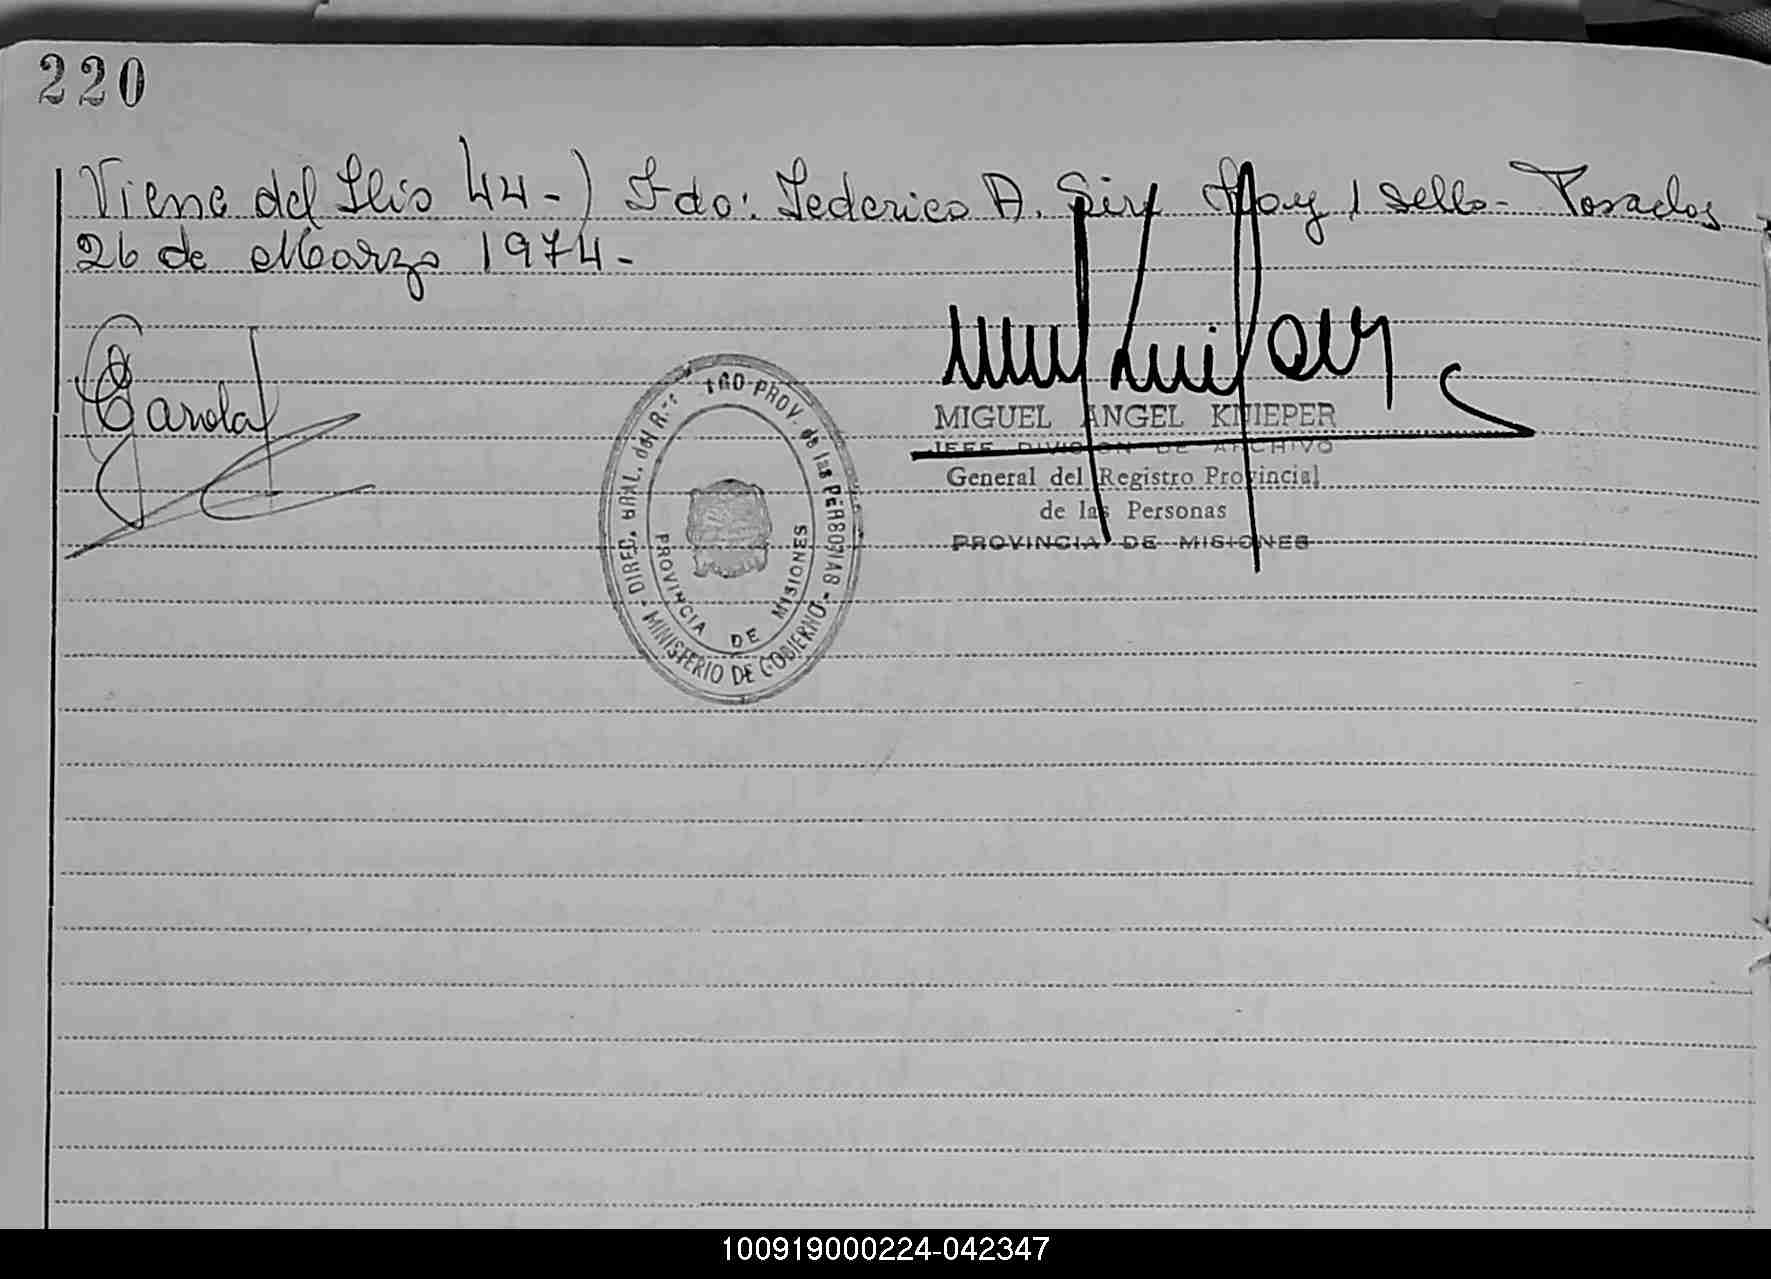 220
Viene del flio 44-) Fdo: Federico A. Hay 1 sello- Posadas,
26 de Marzo 1974.-
MIGUEL ANGEL KNIEPER
JEFE DIVISION DE ARCHIVO
General del Registro Provincial
de las Personas
PROVINCIA DE MISIONES
DIREC. GRAL. del PROV. de las PERSONAS - MINISTERIO DE GOBIERNO -
PROVINCIA DE MISIONES
100919000224-042347